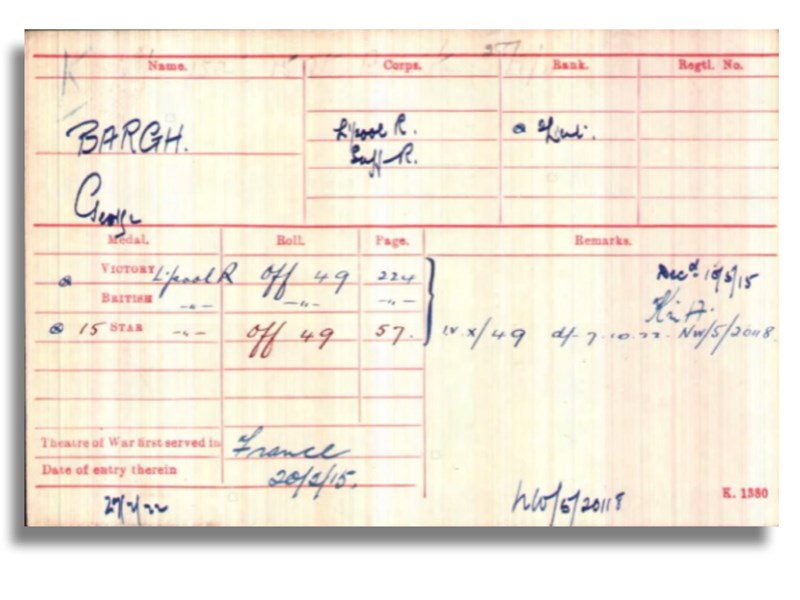 Name. Corps. Rank. Regtl. No.
BARGH. L'pool R. Lieut.
Suff. R.
George
Medal. Roll. Page. Remarks.
VICTORY L'pool R Off 49 224 Dec'd 15
BRITISH -"- -"- -"-
15 STAR -"- Off 49 57. IV. X/49 d/- 7.10.22. NW/5/20118.
Theatre of War first served in France
Date of entry therein 20/2/15.
NW/5/20118 K. 1380